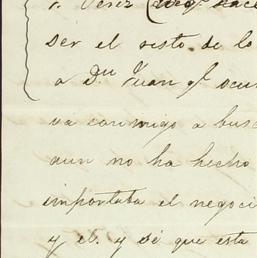 ser el resto de lo
a Dn Juan qe ocur
va conmigo a busc
aun no ha hecho
importaba el negoci
y el y dé que esta